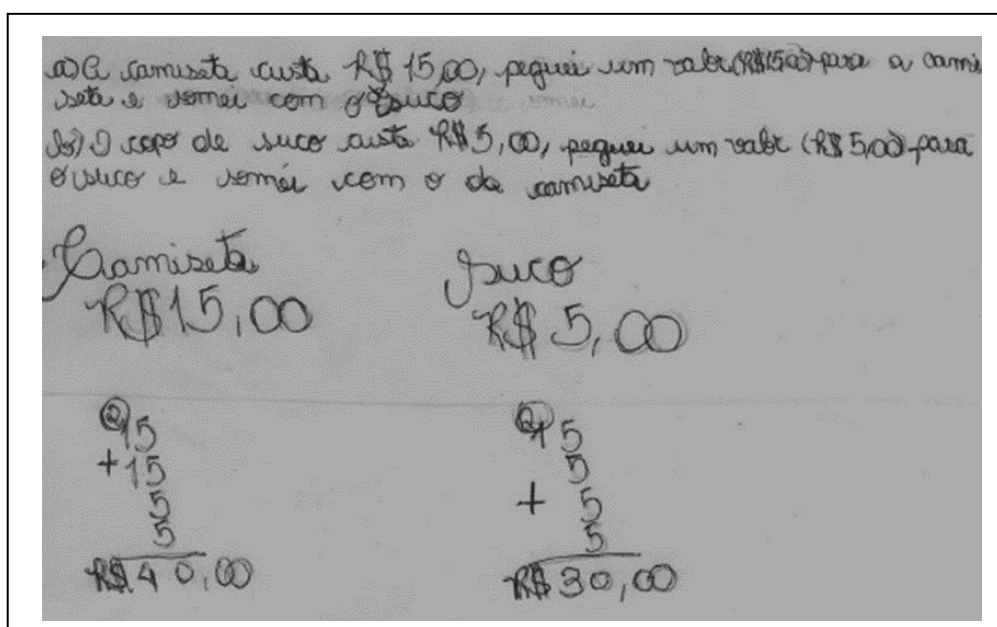 a) A camiseta custa R$ 15,00, peguei um valor (R$15,00) para a cami
seta e somei com o suco
b) O copo de suco custa R$ 5,00, peguei um valor (R$ 5,00) para
o suco e somei com o da camiseta
Camiseta Suco
R$15,00 R$ 5,00
② 15 ② 15
+15 5
5 + 5
5 5
R$ 40,00 R$ 30,00